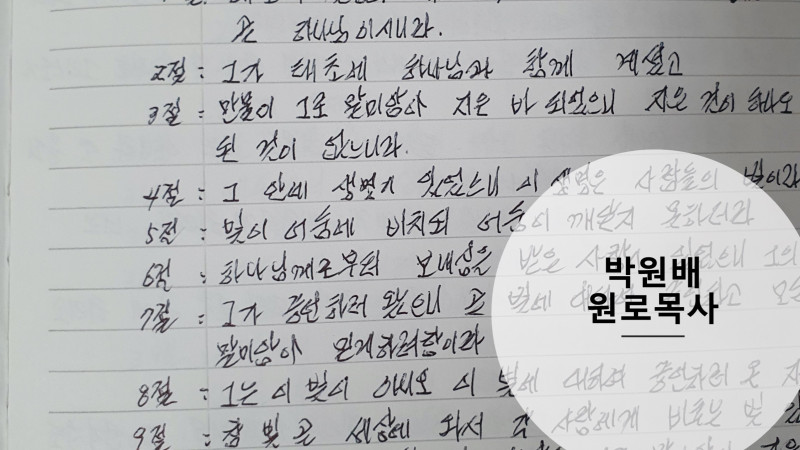 곧 하나님이시니라.
2절 : 그가 태초에 하나님과 함께 계셨고
3절 : 만물이 그로 말미암아 지은 바 되었으니 지은 것이 하나도
된 것이 없느니라.
4절 : 그 안에 생명이 있었으니 이 생명은 사람들의 빛이라
5절 : 빛이 어둠에 비치되 어둠이 깨닫지 못하더라
6절 : 하나님께로부터 보내심을 받은 사람이 있었으니 그의
7절 : 그가 증언하러 왔으니 곧 빛에 대하여 증언하고 모든
말미암아 믿게하려함이라
8절 : 그는 이 빛이 아니요 이 빛에 대하여 증언하러 온 자
9절 : 참 빛 곧 세상에 와서 각 사람에게 비추는 빛
박원배
원로목사